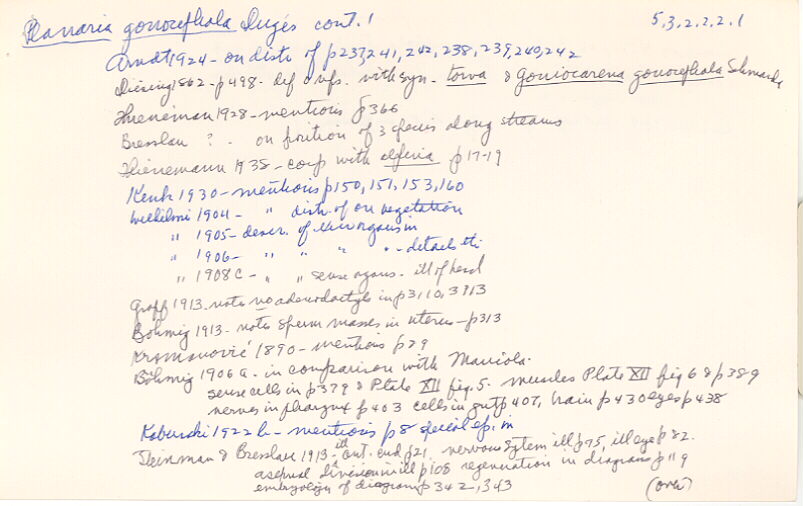 Planaria gonocephala Dugés cont. 1 5,3,2,2,2.1
Arndt 1924 - on distr of p237,241, 242, 238, 239, 240, 242
Diesing 1862 - p498 - def with syn - torva & Goniocarena gonocephala Schmarda
Thieneman 1928 - mentions p366
Bresslau ? - on position of 3 species along streams
Thienemann 1938 - comp with alpina p17-19
Kenk 1930 - mentions p150, 151, 153, 160
Wilhelmi 1904 - " distr. of on vegetation
" 1905 - descr. of
" 1906 - " " " " - details
" 1908c - " " sense organs - ill of head
Graff 1913 - notes no adenodactyls in p3110, 3113
Böhmig 1913 - notes sperm masses in uterus - p313
1890 - mentions p29
Böhmig 1906a - in comparison with
sense cells in p379 & Plate XII fig. 5 - muscles Plate XII fig 6 & p389
nerves in pharynx p403 cells in gut p407, brain p430 eyes p438
1922b - mentions p8 special ep. in
Steinman & Bresslau 1913 - ill ant. end p21, nervous system ill p75, ill eye p82.
asexual division ill p108 regeneration in diagram p119
embryology of diagram p342, 343 (over)